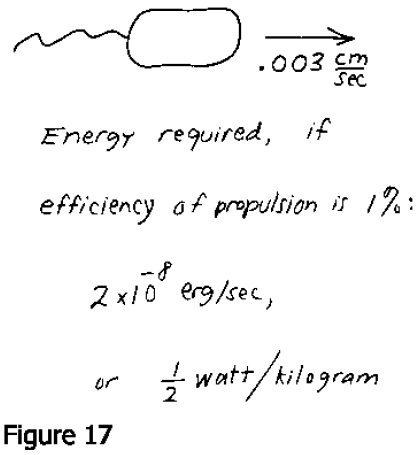 .003 cm/sec
Energy required, if
efficiency of propulsion is 1%:
2 x 10⁻⁸ erg/sec,
or ½ watt/kilogram
Figure 17